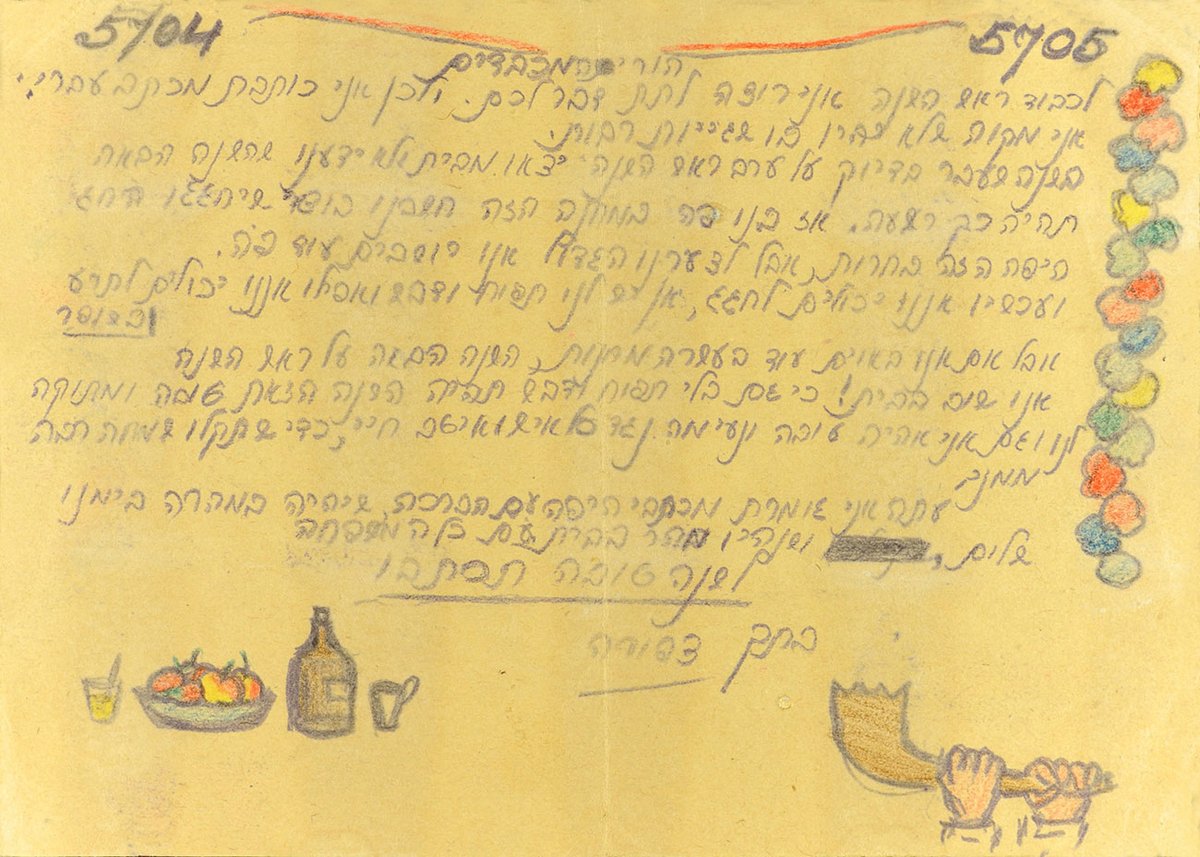 5704 5705
הורי המכבדים
לכבוד ראש השנה אני רוצה לתת דבר לכם. ולכן אני כותבת מכתב עברי.
אני מקוה שלא יהיו בו שגיאות רבות.
בשנה שעבר בדיוק על ערב ראש השנה יצאו מבית ולא ידענו שהשנה הבאה
תהיה כך רשעה. אז בנו פה במחנה הזה חשבנו שיחגגו החג
היפה הזה בחרות, אבל לצערנו הגדול אנו יושבים עוד פה.
ועכשיו אננו יכולים לחגג, אין לנו תפוח ודבש ואפילו אננו יכולים לתקע
בשופר
אבל אם אנו באים עוד בעשרה מחנות, השנה הבאה על ראש השנה
אנו שוב בבית! כי גם בלי תפוח ודבש תהיה השנה הזאת טובה ומתוקה
לנו וגם אני אהיה טובה ונעימה נגד כל איש ואיטב חיי, כדי שתקבלו שמחה רבה
ממני.
עתה אני גומרת מכתבי היפה עם הברכה, שיהיה במהרה בימנו
שלום, ושנהיו מהר בבית עם כל המשפחה
לשנה טובה תכתבו
בתך צפורה